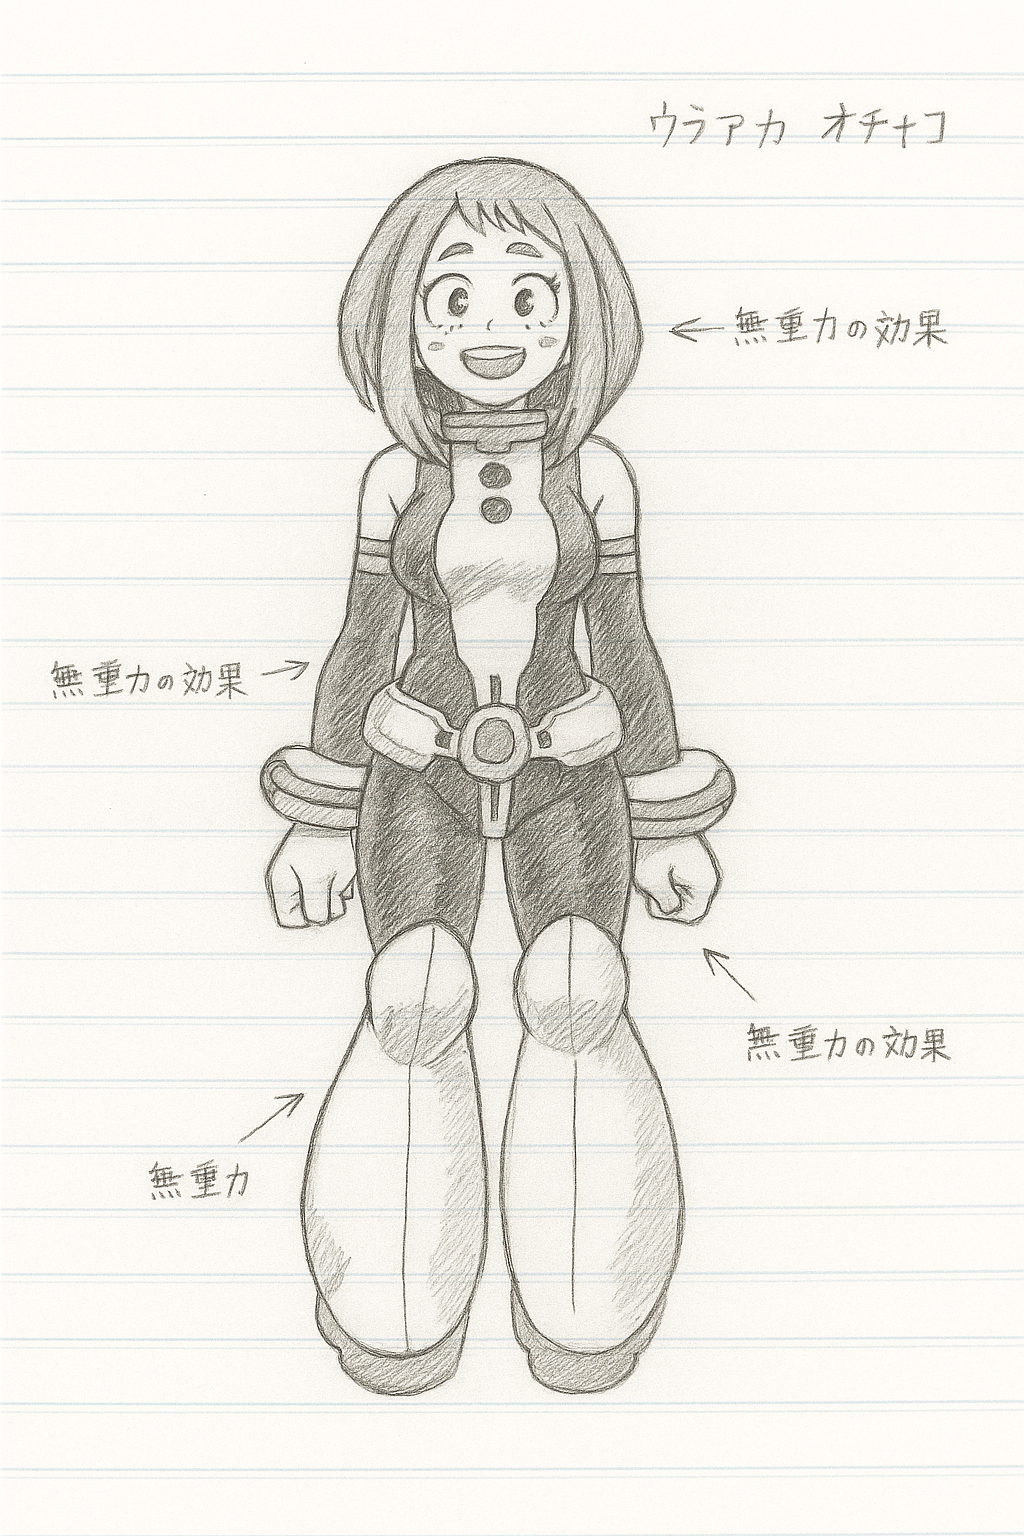 ウラアカ オチャコ
無重力の効果
無重力の効果
無重力の効果
無重力